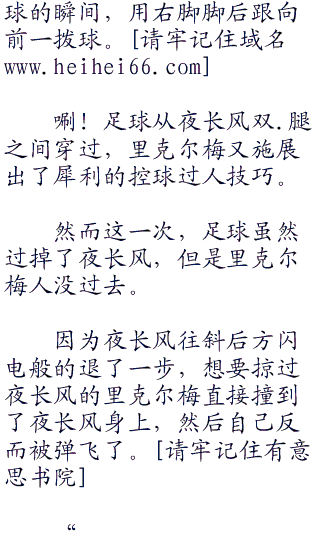 球的瞬间，用右脚脚后跟向
前一拨球。[请牢记住域名
www.heihei66.com]
唰！足球从夜长风双.腿
之间穿过，里克尔梅又施展
出了犀利的控球过人技巧。
然而这一次，足球虽然
过掉了夜长风，但是里克尔
梅人没过去。
因为夜长风往斜后方闪
电般的退了一步，想要掠过
夜长风的里克尔梅直接撞到
了夜长风身上，然后自己反
而被弹飞了。[请牢记住有意
思书院]
“